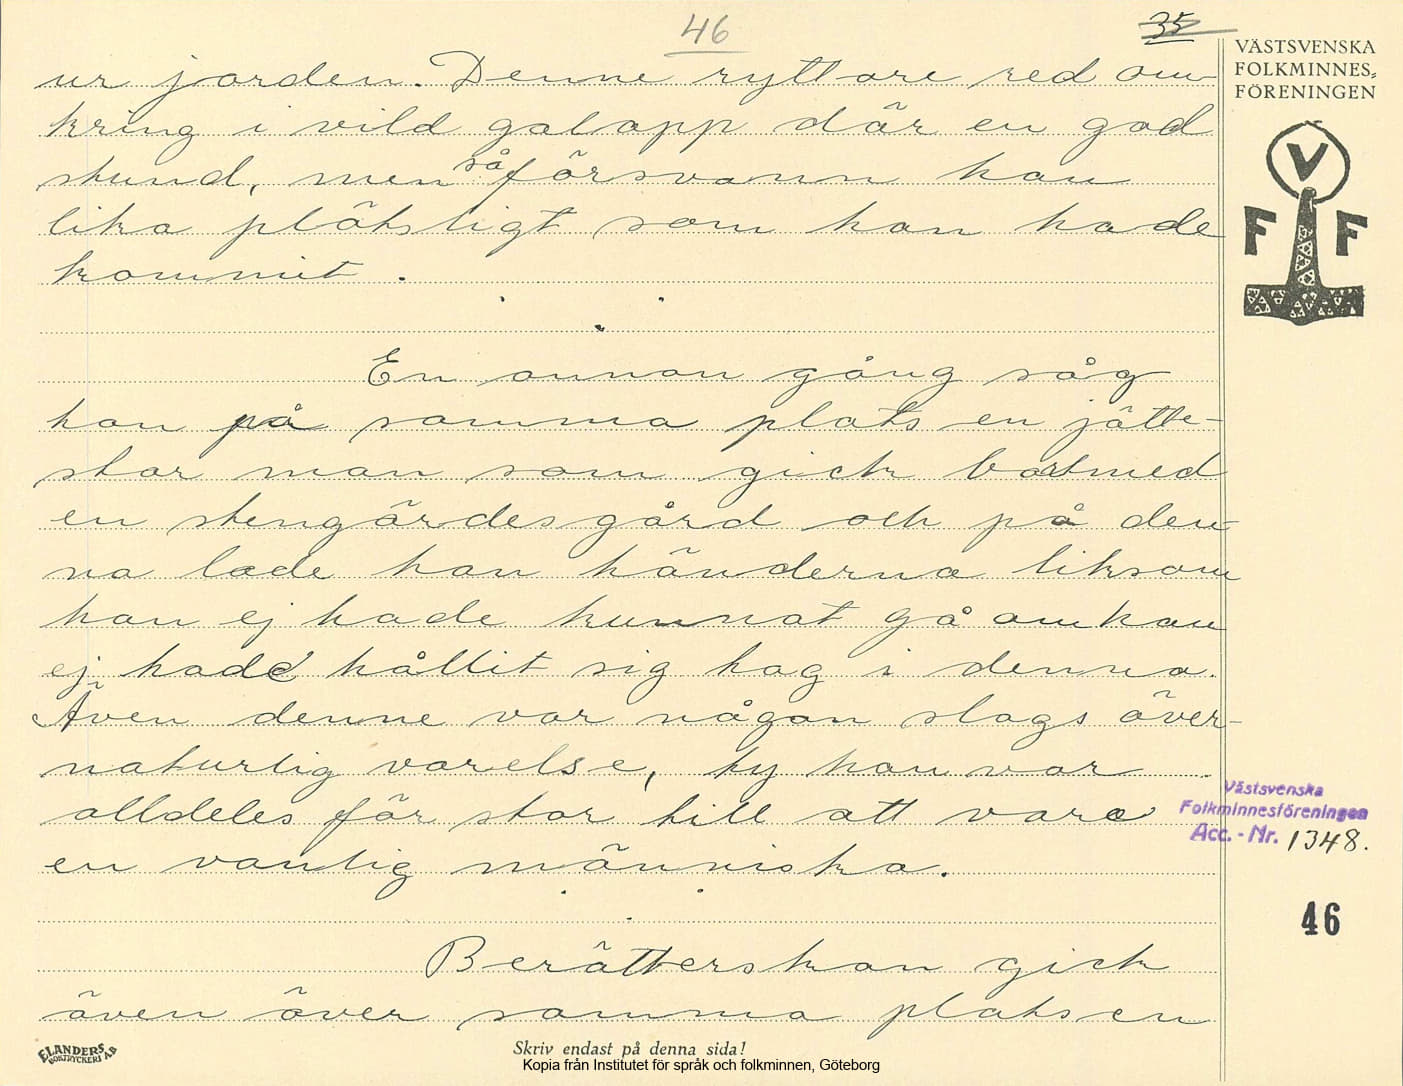 46
35
VÄSTSVENSKA
FOLKMINNES-
FÖRENINGEN
V
F F
ur jorden. Denne ryttare red om-
kring i vild galopp där en god
stund, men så försvann han
lika plötsligt som han hade
kommit.
En annan gång såg
han på samma plats en jätte-
stor man som gick bortmed
en stengärdesgård och på den-
na lade han händerna liksom
han ej hade kunnat gå om han
ej hade hållit sig hag i denna.
Även denne var någon slags över-
naturlig varelse, ty han var
alldeles för stor till att vara
en vanlig människa.
Västsvenska
Folkminnesföreningen
Acc. - Nr. 1348.
46
Berätterskan gick
även över samma plats en
ELANDERS
BOKTRYCKERI AB
Skriv endast på denna sida!
Kopia från Institutet för språk och folkminnen, Göteborg